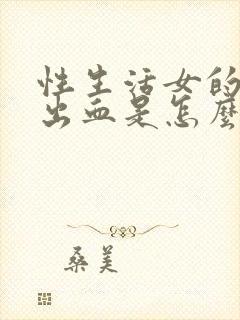 性生活女的
出血是怎麼
桑美